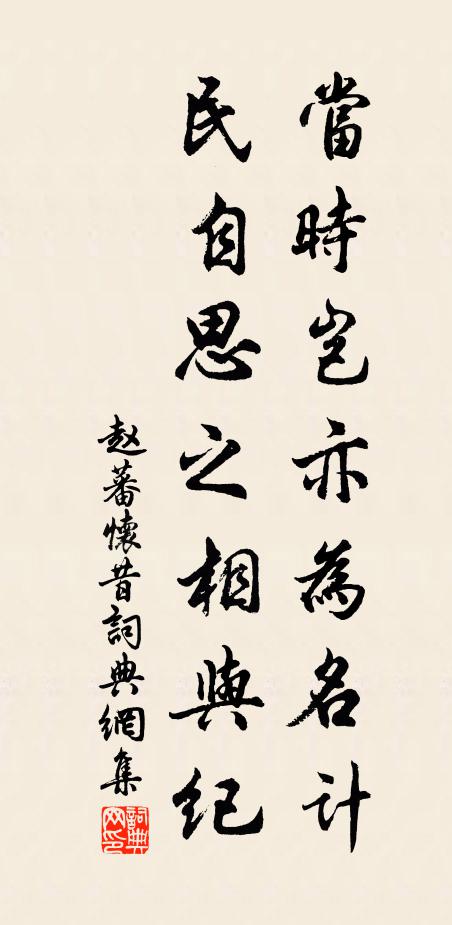 當時豈亦為名計
民自思之相與紀
赵蕃懷昔詞典網集
詞典网印